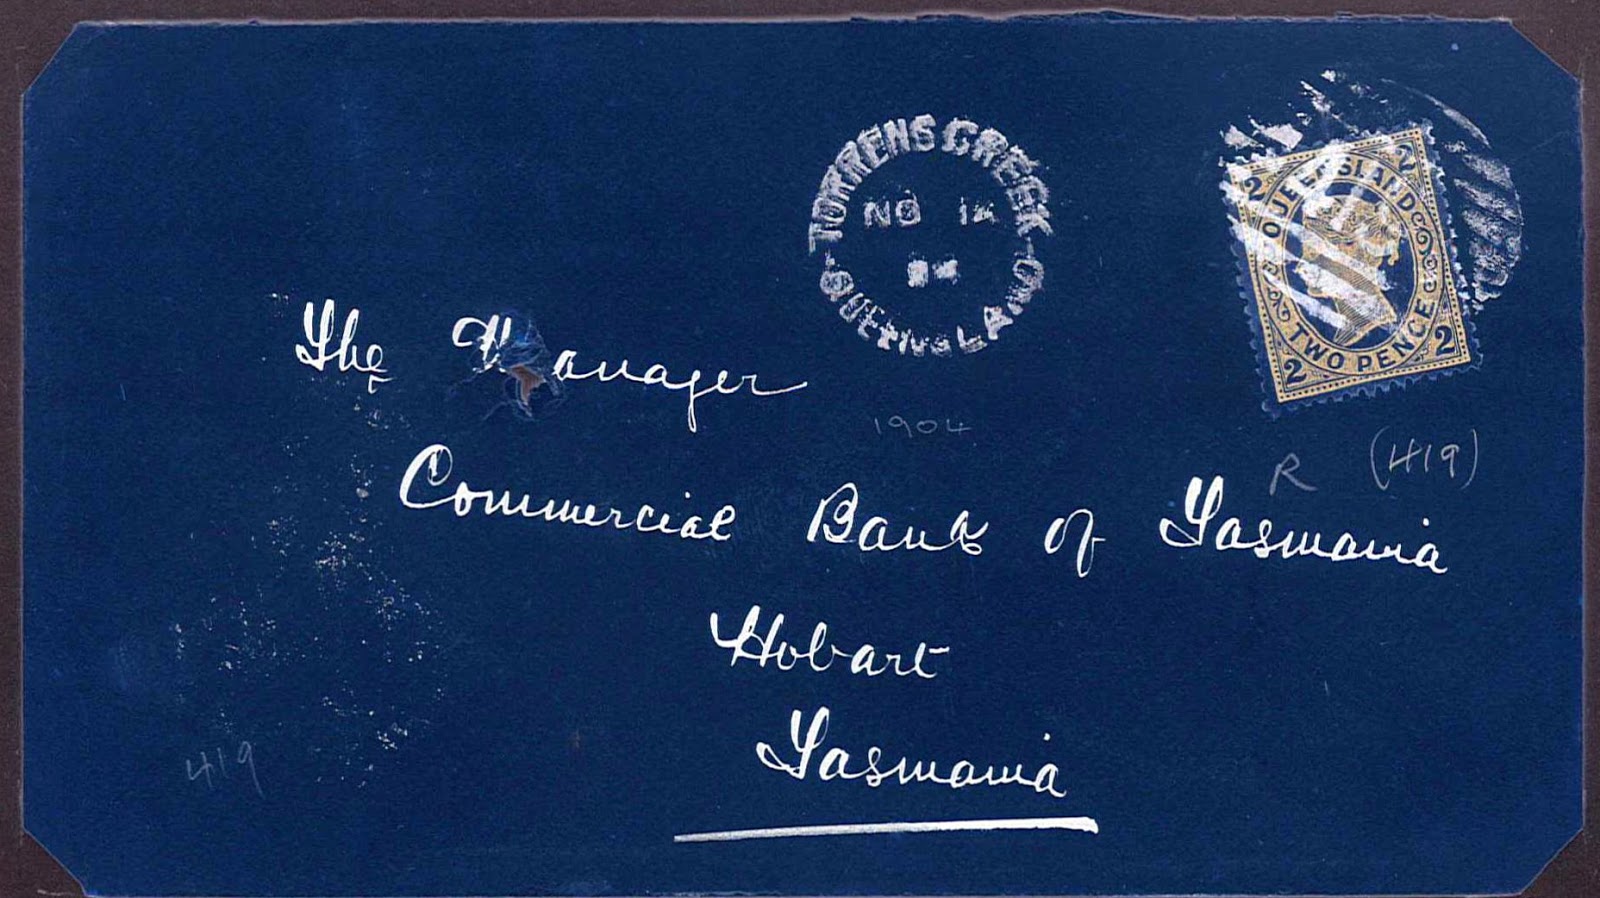 TORRENS CREEK
NO 1
QUEENSLAND
2 QUEENSLAND 2
2 TWO PENCE 2
The Manager
1904
R (419)
Commercial Bank of Tasmania
Hobart
Tasmania
419